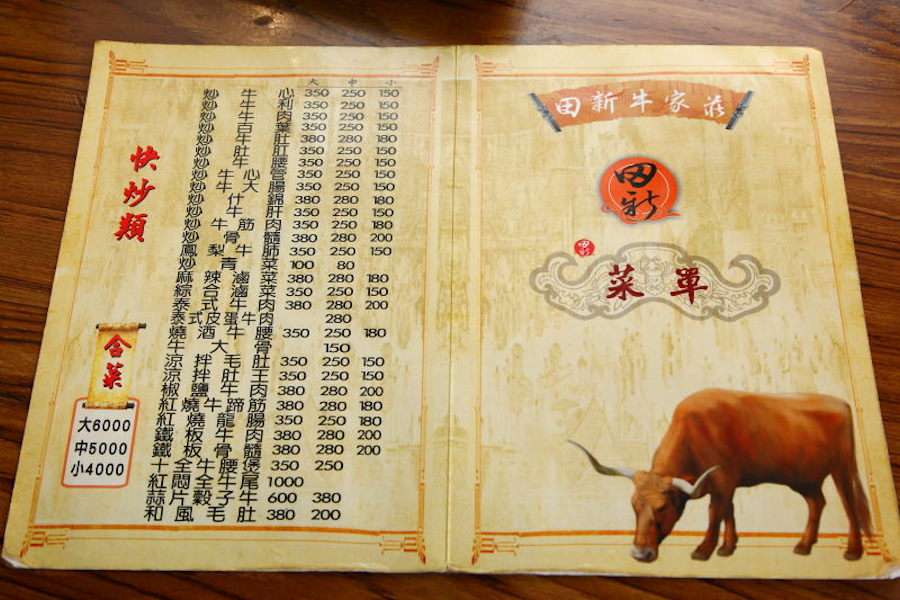 大 中 小
炒牛心 350 250 150
炒牛利 350 250 150
炒牛肉 350 250 150
炒百葉 350 250 150
炒牛肚 380 280 180
炒肚肛 350 250 150
炒牛腰 350 250 150
炒牛心管 350 250 150
炒牛大腸 350 250 150
炒什錦 380 280 180
炒牛肝 350 250 150
炒牛筋肉 350 250 180
炒骨髓 380 280 200
鳳梨牛肺 350 250 150
炒青菜 100 80
麻辣滷菜 380 280 180
綜合滷菜 350 250 150
泰式牛肉 380 280 200
泰式皮蛋牛肉 280
燒酒牛腰 350 250 180
牛大骨 150
涼拌毛肚 350 250 150
涼拌肚王 350 250 150
椒鹽牛肉 380 280 200
紅燒牛蹄筋 380 280 180
紅燒龍腸 350 250 180
鐵板牛肉 380 280 200
鐵板骨髓 380 280 200
十全牛腰煲 350 250
紅悶全牛尾 1000
蒜片穀子牛 600 380
和風毛肚 380 200
快炒類
合菜
大6000
中5000
小4000
田新牛家莊
田新
田新
菜單